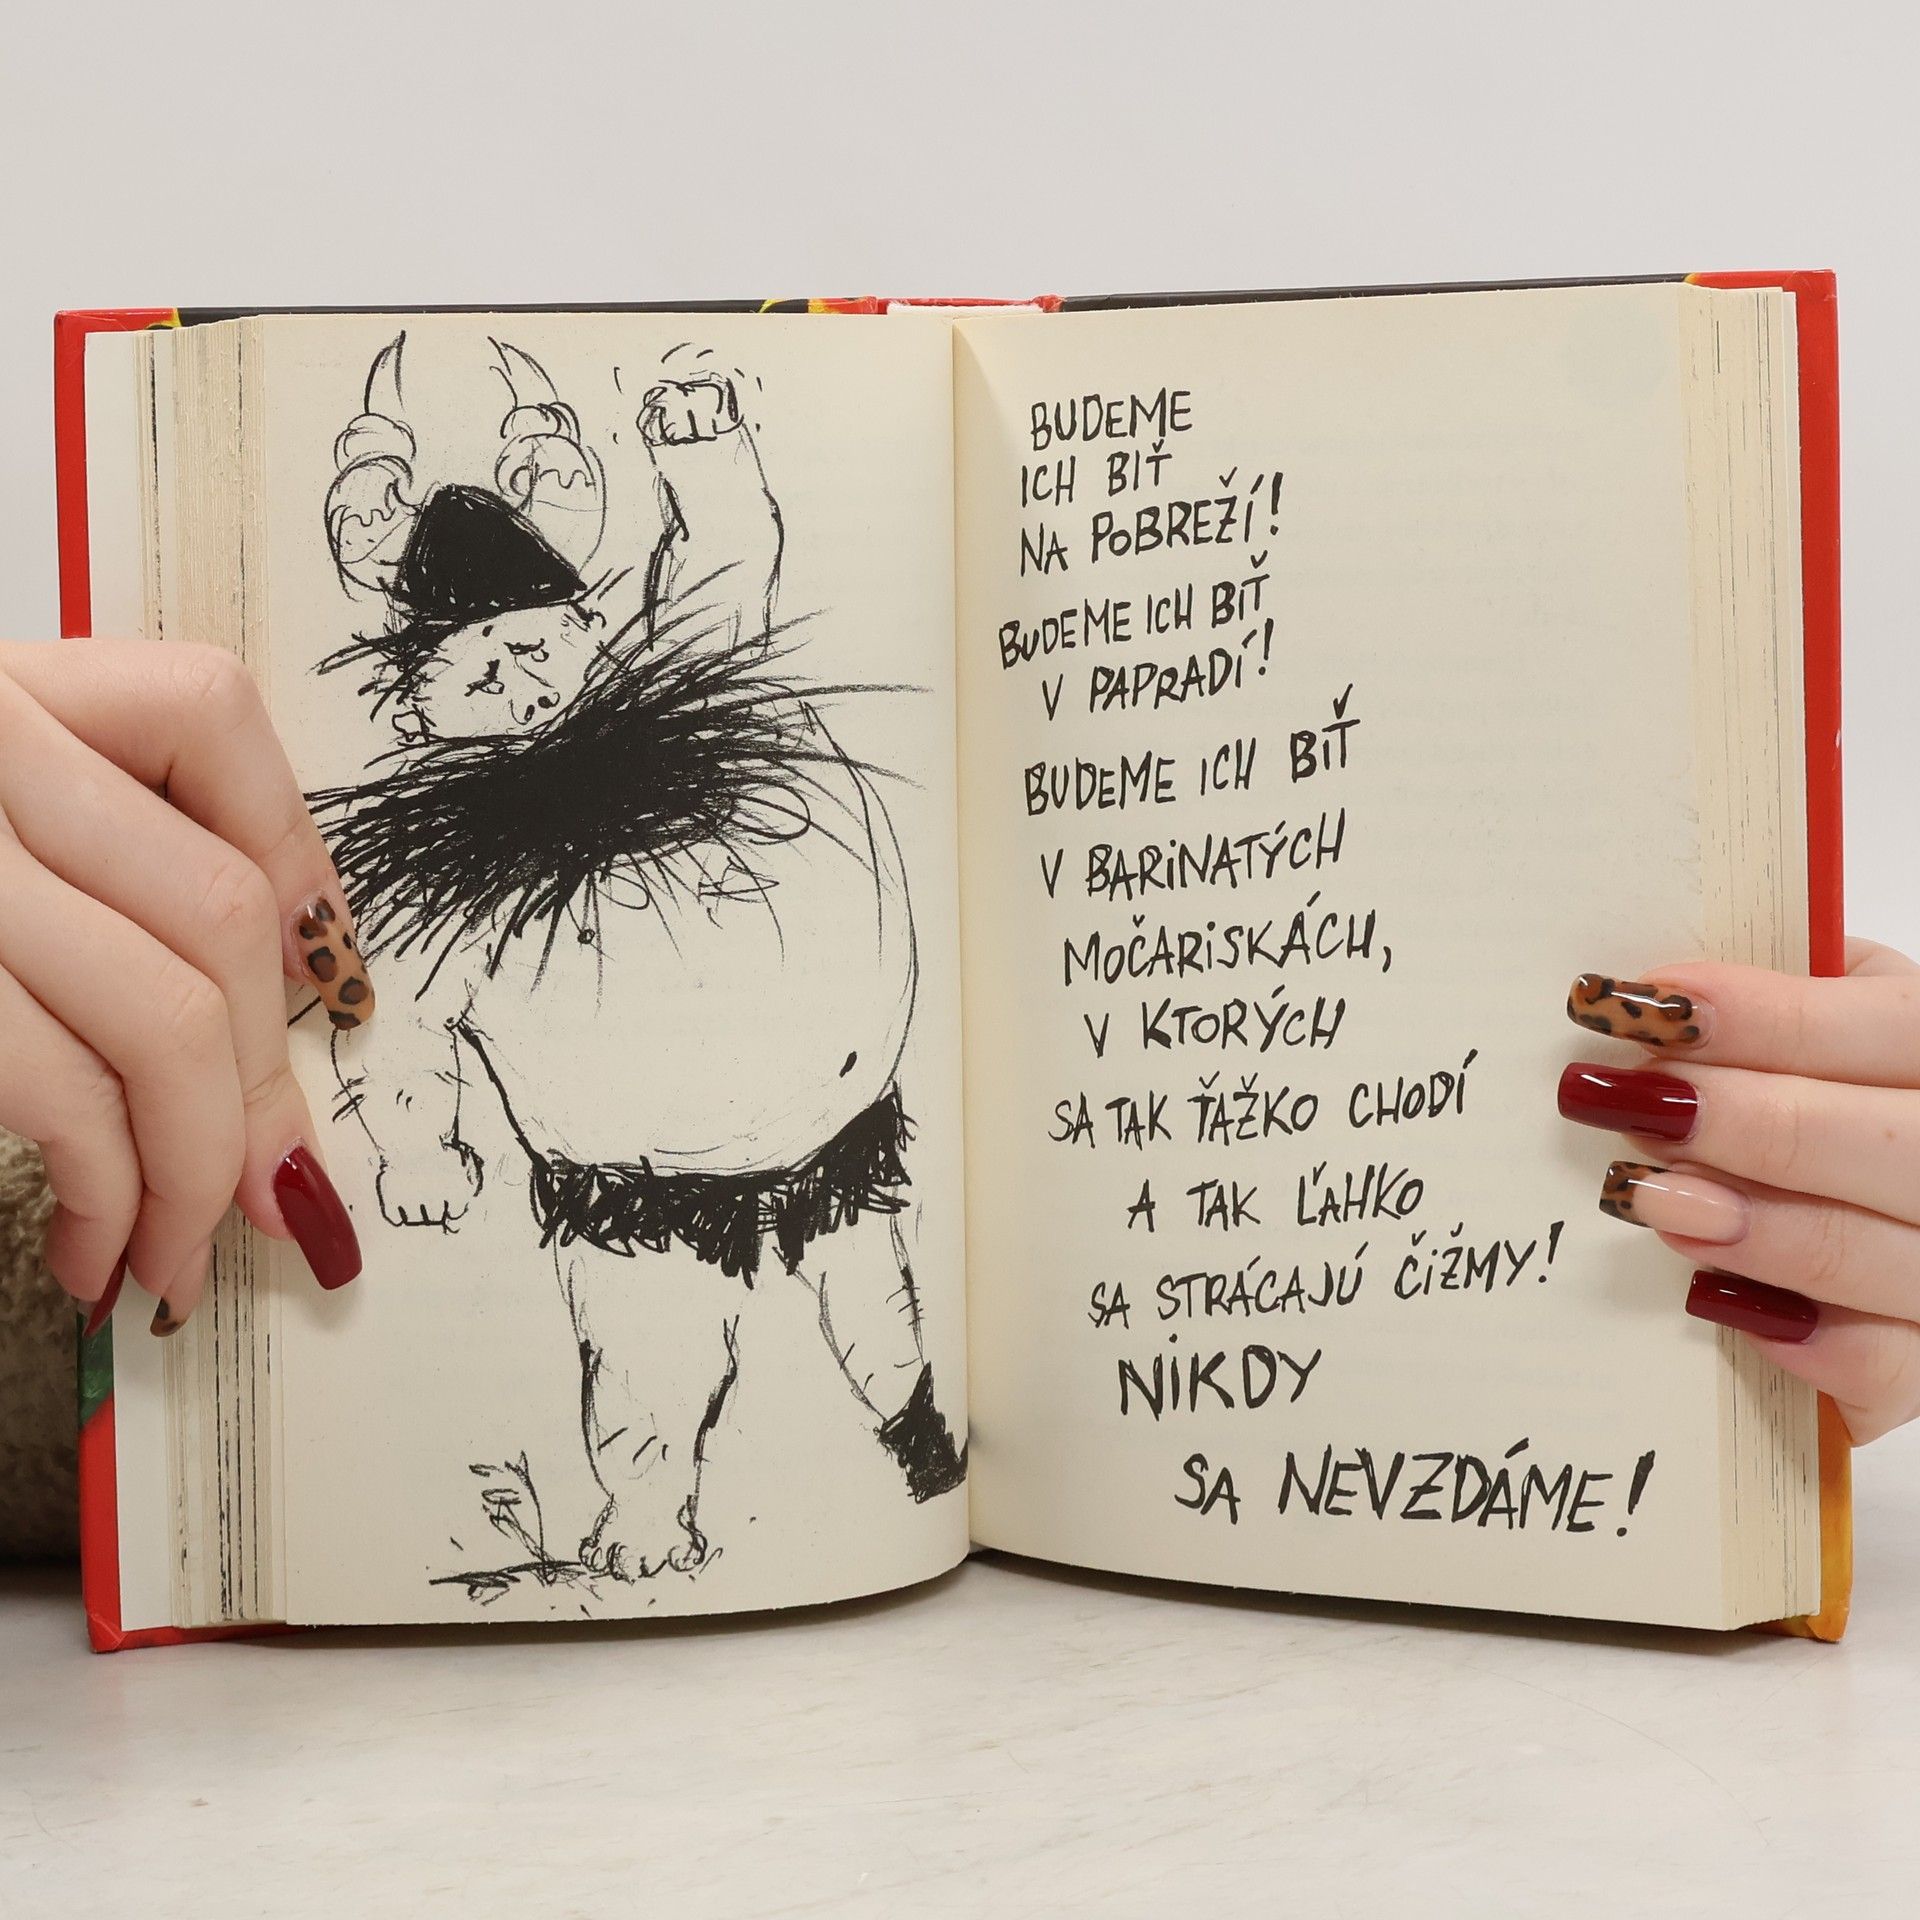 BUDEME
ICH BIŤ
NA POBREŽÍ!
BUDEME ICH BIŤ
V PAPRADÍ!
BUDEME ICH BIŤ
V BARINATÝCH
MOČARISKÁCH,
V KTORÝCH
SA TAK ŤAŽKO CHODÍ
A TAK ĽAHKO
SA STRÁCAJÚ ČIŽMY!
NIKDY
SA NEVZDÁME!